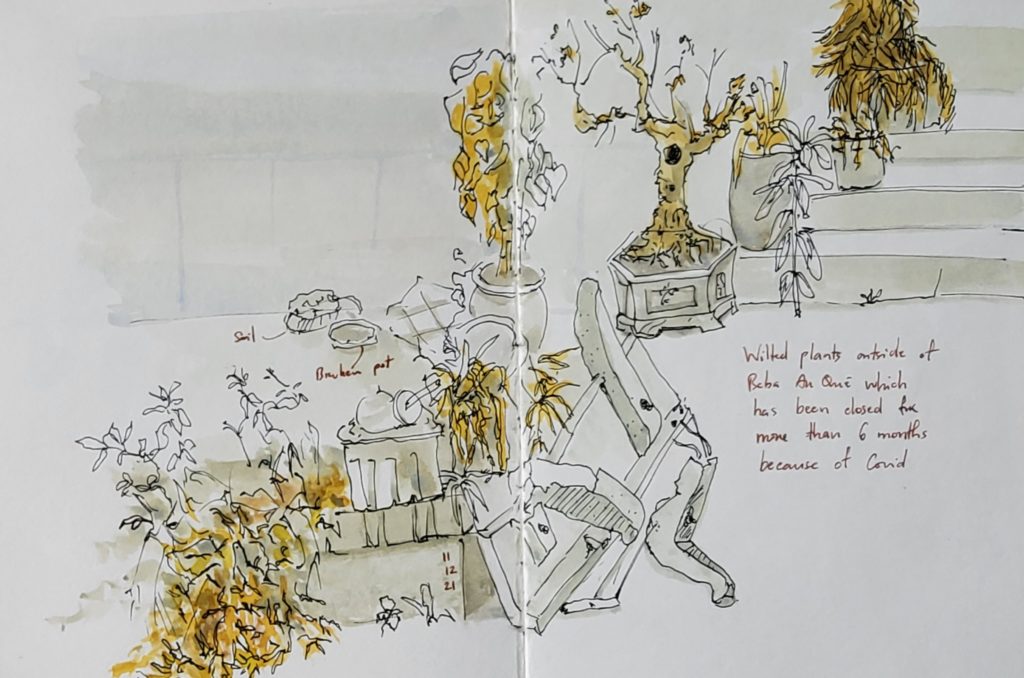 Soil
Broken pot
Wilted plants outside of
Beba An Quê which
has been closed for
more than 6 months
because of Covid
11
12
21